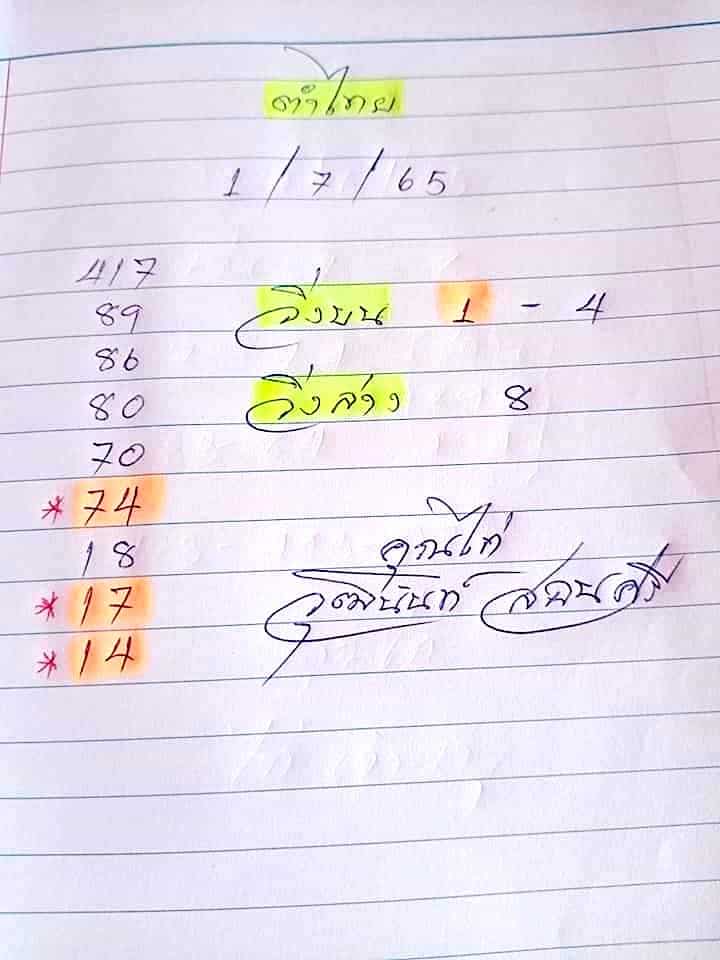 ตำไทย
1/7/65
417
89 วิ่งบน 1 - 4
86
80 วิ่งล่าง 8
70
*74
18 คุณไก่
*17 วุฒินันท์
*14